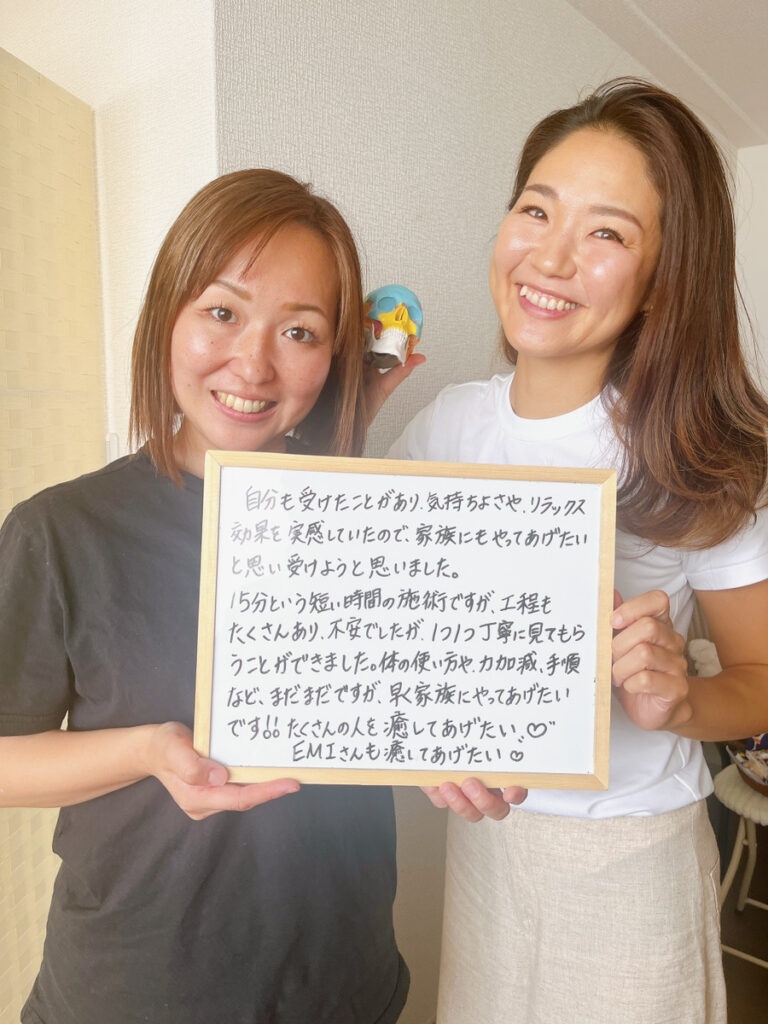 自分も受けたことがあり、気持ちよさや、リラックス
効果を実感していたので、家族にもやってあげたい
と思い受けようと思いました。
15分という短い時間の施術ですが、工程も
たくさんあり、不安でしたが、1つ1つ丁寧に見てもら
うことができました。体の使い方や、力加減、手順
など、まだまだですが、早く家族にやってあげたい
です!! たくさんの人を癒してあげたい♡
EMIさんも癒してあげたい♡